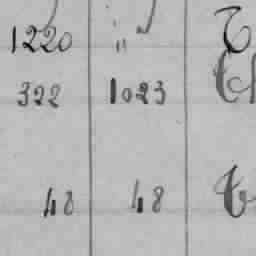 1220 "
322 1023
48 48